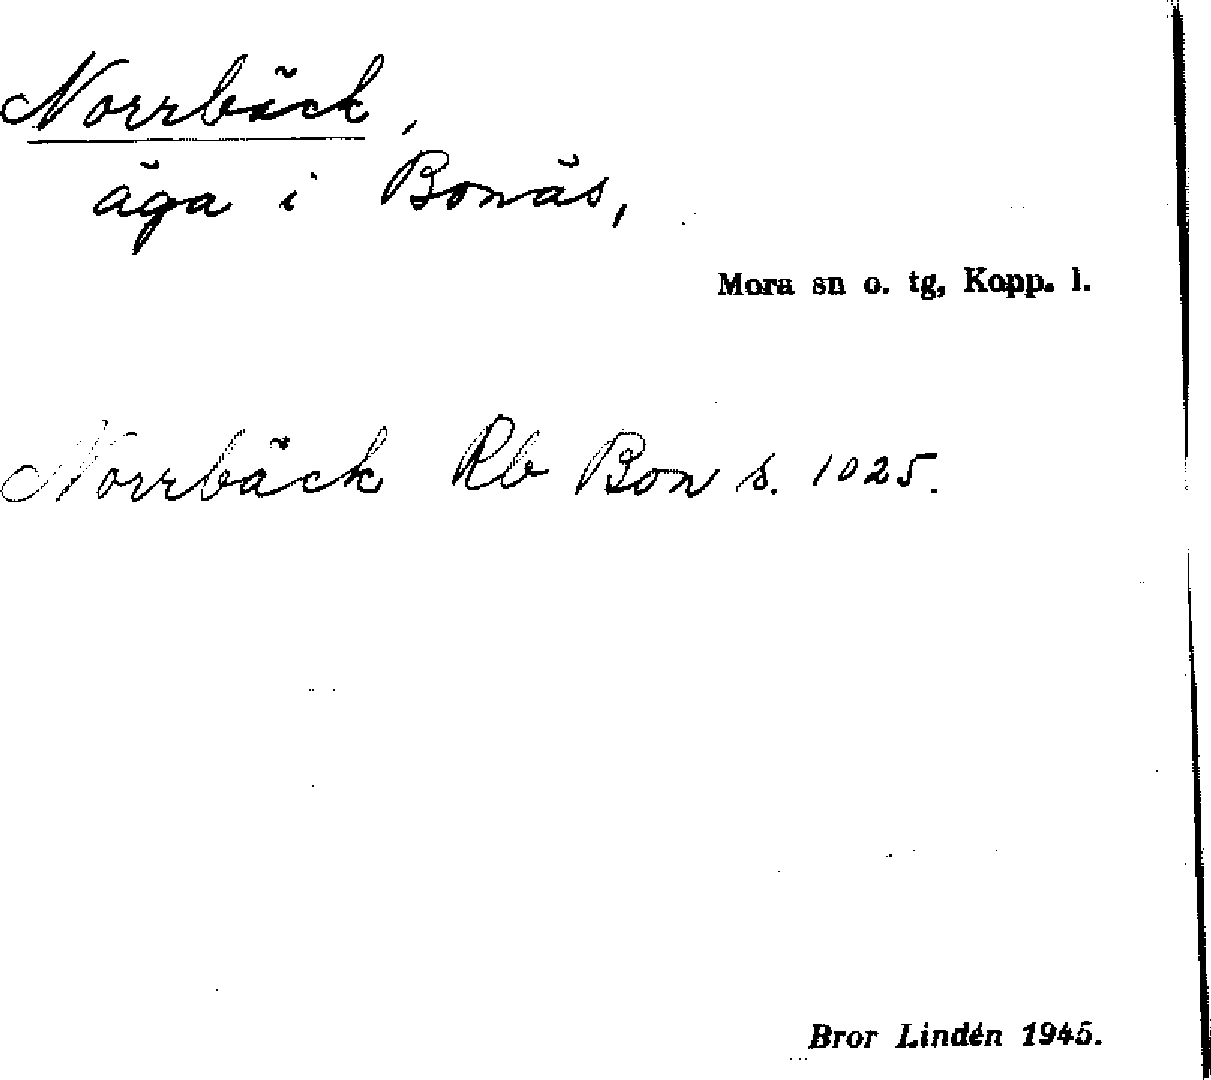 Norrbäck,
äga i Bonäs,
Mora sn o. tg, Kopp. l.
Norrbäck Rb Bon s. 1025.
Bror Lindén 1945.